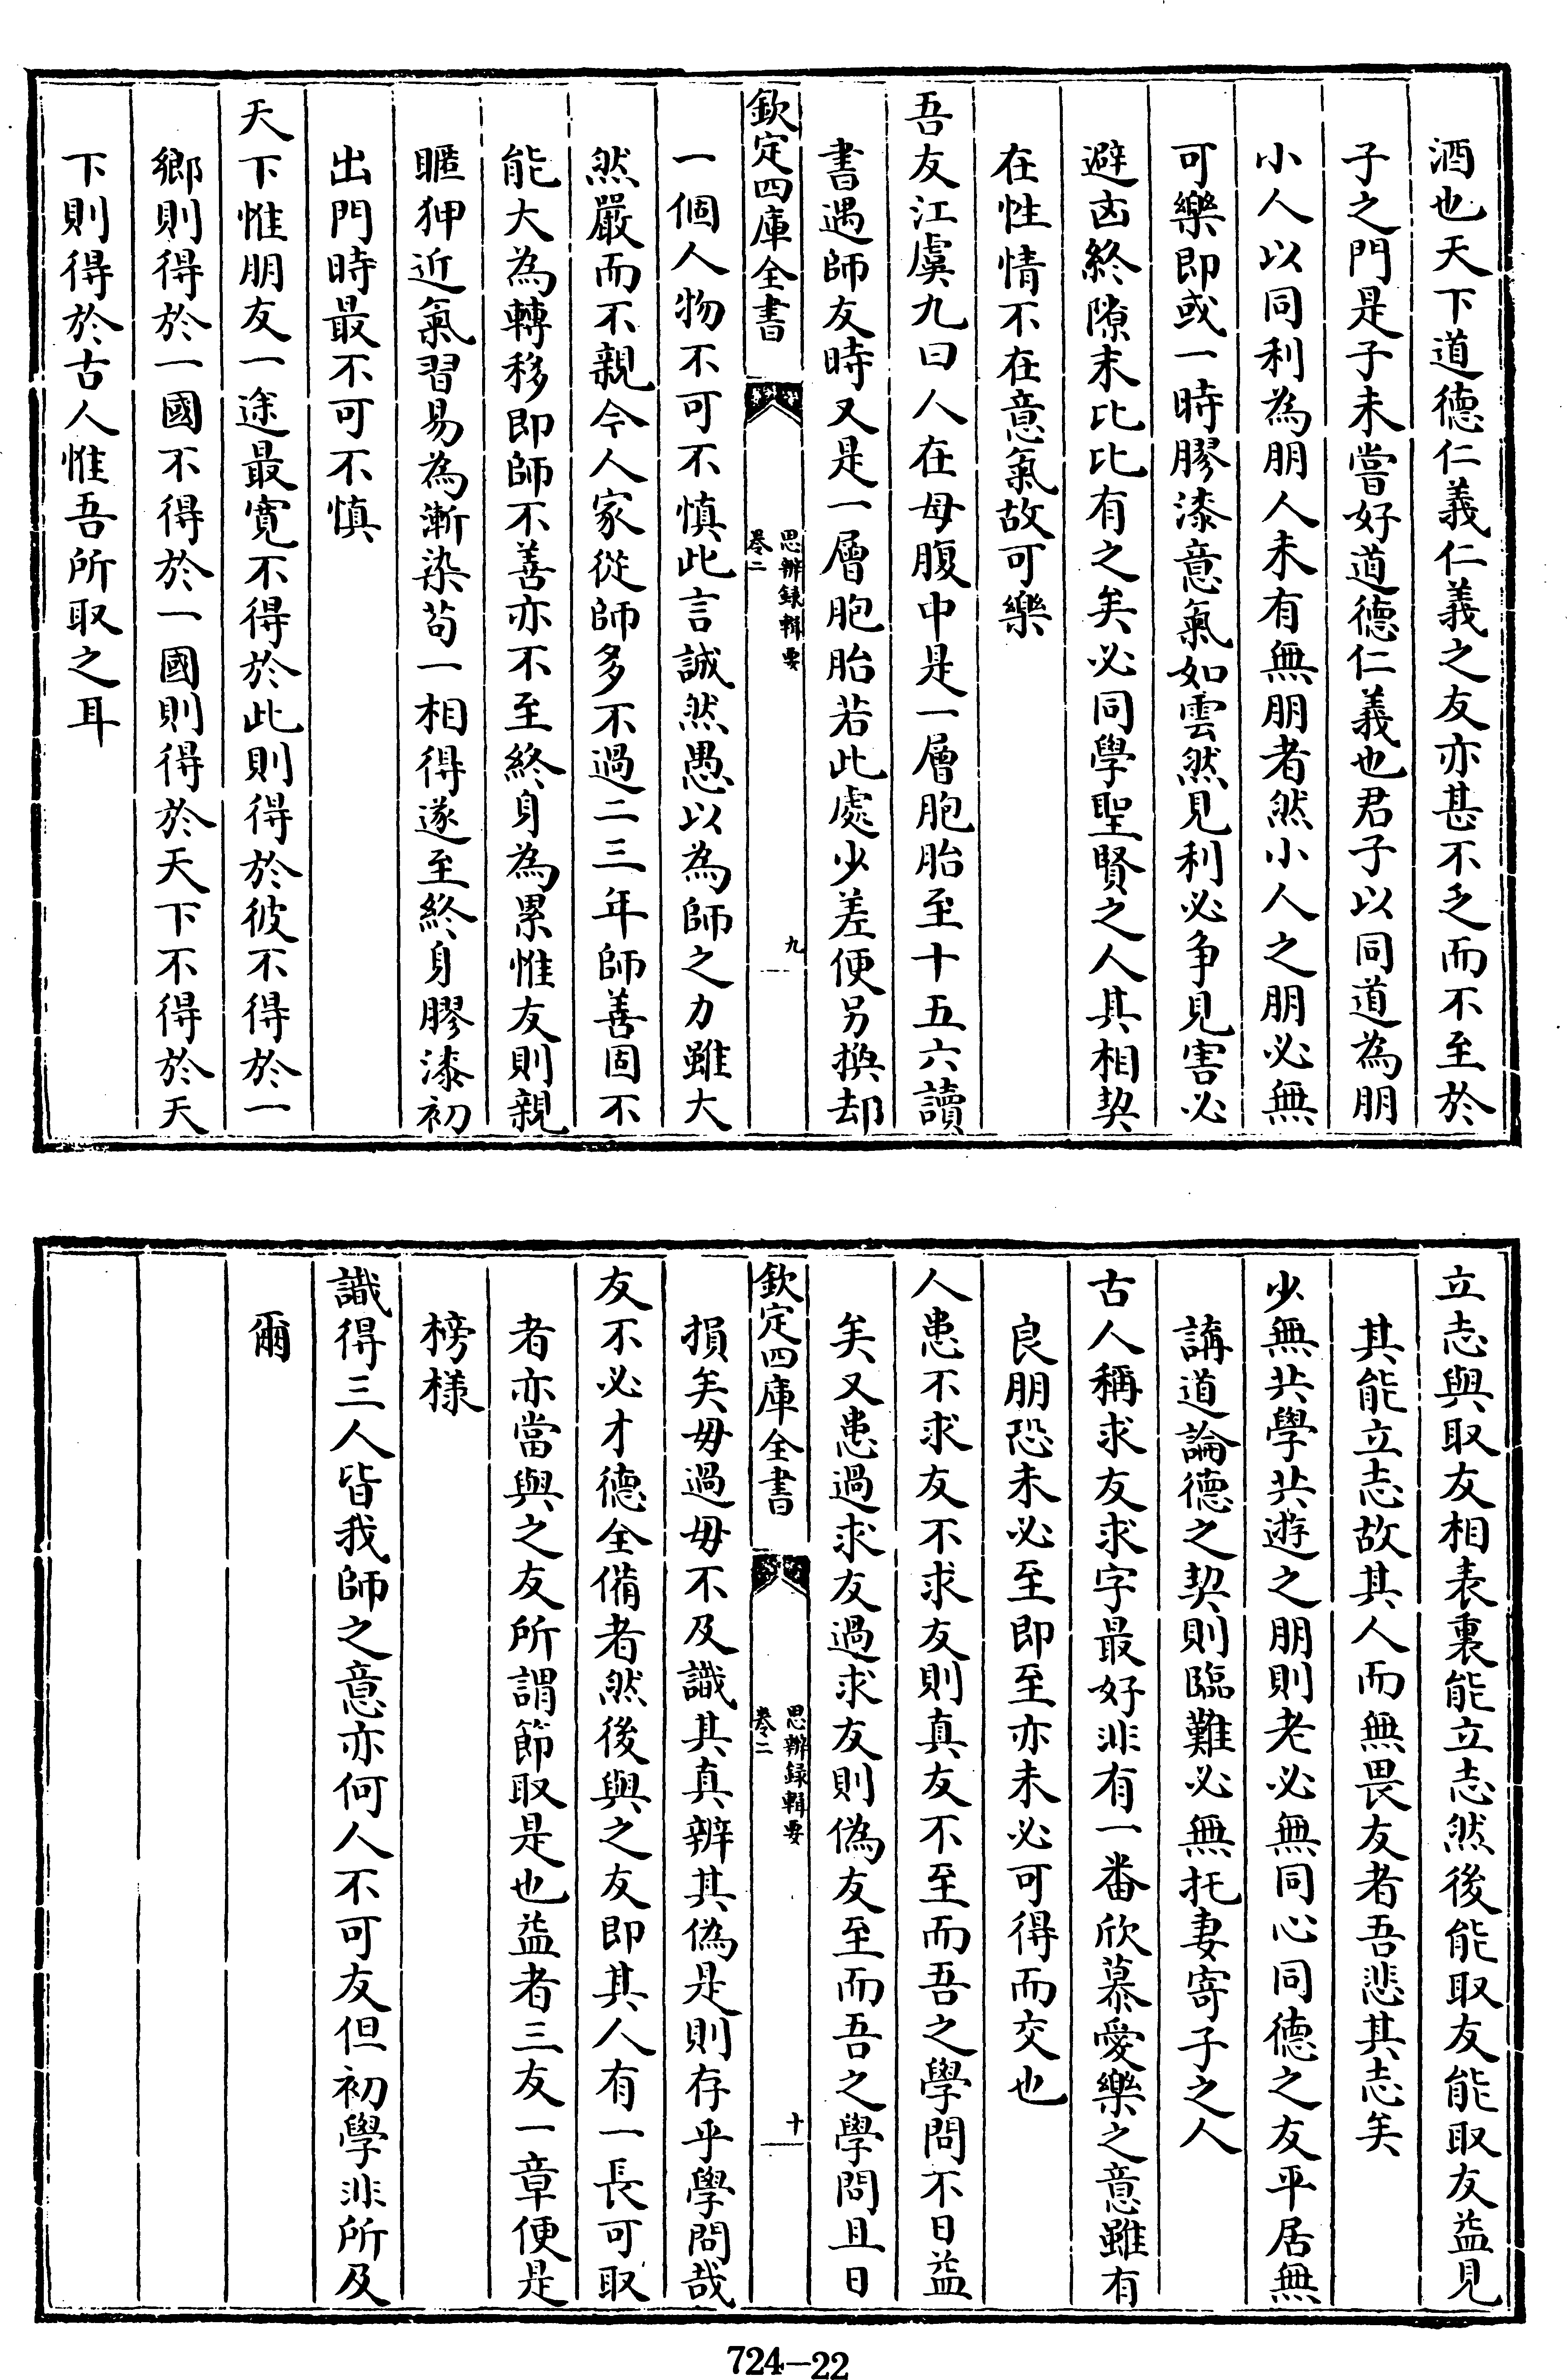 酒也天下道德仁義仁義之友亦甚不乏而不至於
子之門是子未嘗好道德仁義也君子以同道為朋
小人以同利為朋人未有無朋者然小人之朋必無
可樂即或一時膠漆意氣如雲然見利必争見害必
避凶終隙末比比有之矣必同學聖賢之人其相契
在性情不在意氣故可樂
吾友江虞九曰人在母腹中是一層胞胎至十五六讀
書遇師友時又是一層胞胎若此處少差便另換却
欽定四庫全書
思辨録輯要
卷二
九
一個人物不可不慎此言誠然愚以為師之力雖大
然嚴而不親今人家從師多不過二三年師善固不
能大為轉移即師不善亦不至終身為累惟友則親
暱狎近氣習易為漸染苟一相得遂至終身膠漆初
出門時最不可不慎
天下惟朋友一途最寛不得於此則得於彼不得於一
鄉則得於一國不得於一國則得於天下不得於天
下則得於古人惟吾所取之耳
立志與取友相表裏能立志然後能取友能取友益見
其能立志故其人而無畏友者吾悲其志矣
少無共學共遊之朋則老必無同心同德之友平居無
講道論德之契則臨難必無托妻寄子之人
古人稱求友求字最好非有一番欣慕愛樂之意雖有
良朋恐未必至即至亦未必可得而交也
人患不求友不求友則真友不至而吾之學問不日益
矣又患過求友過求友則偽友至而吾之學問且日
欽定四庫全書
思辨録輯要
卷二
十
損矣毋過毋不及識其真辨其偽是則存乎學問哉
友不必才德全備者然後與之友即其人有一長可取
者亦當與之友所謂節取是也益者三友一章便是
榜様
識得三人皆我師之意亦何人不可友但初學非所及
爾
724—22